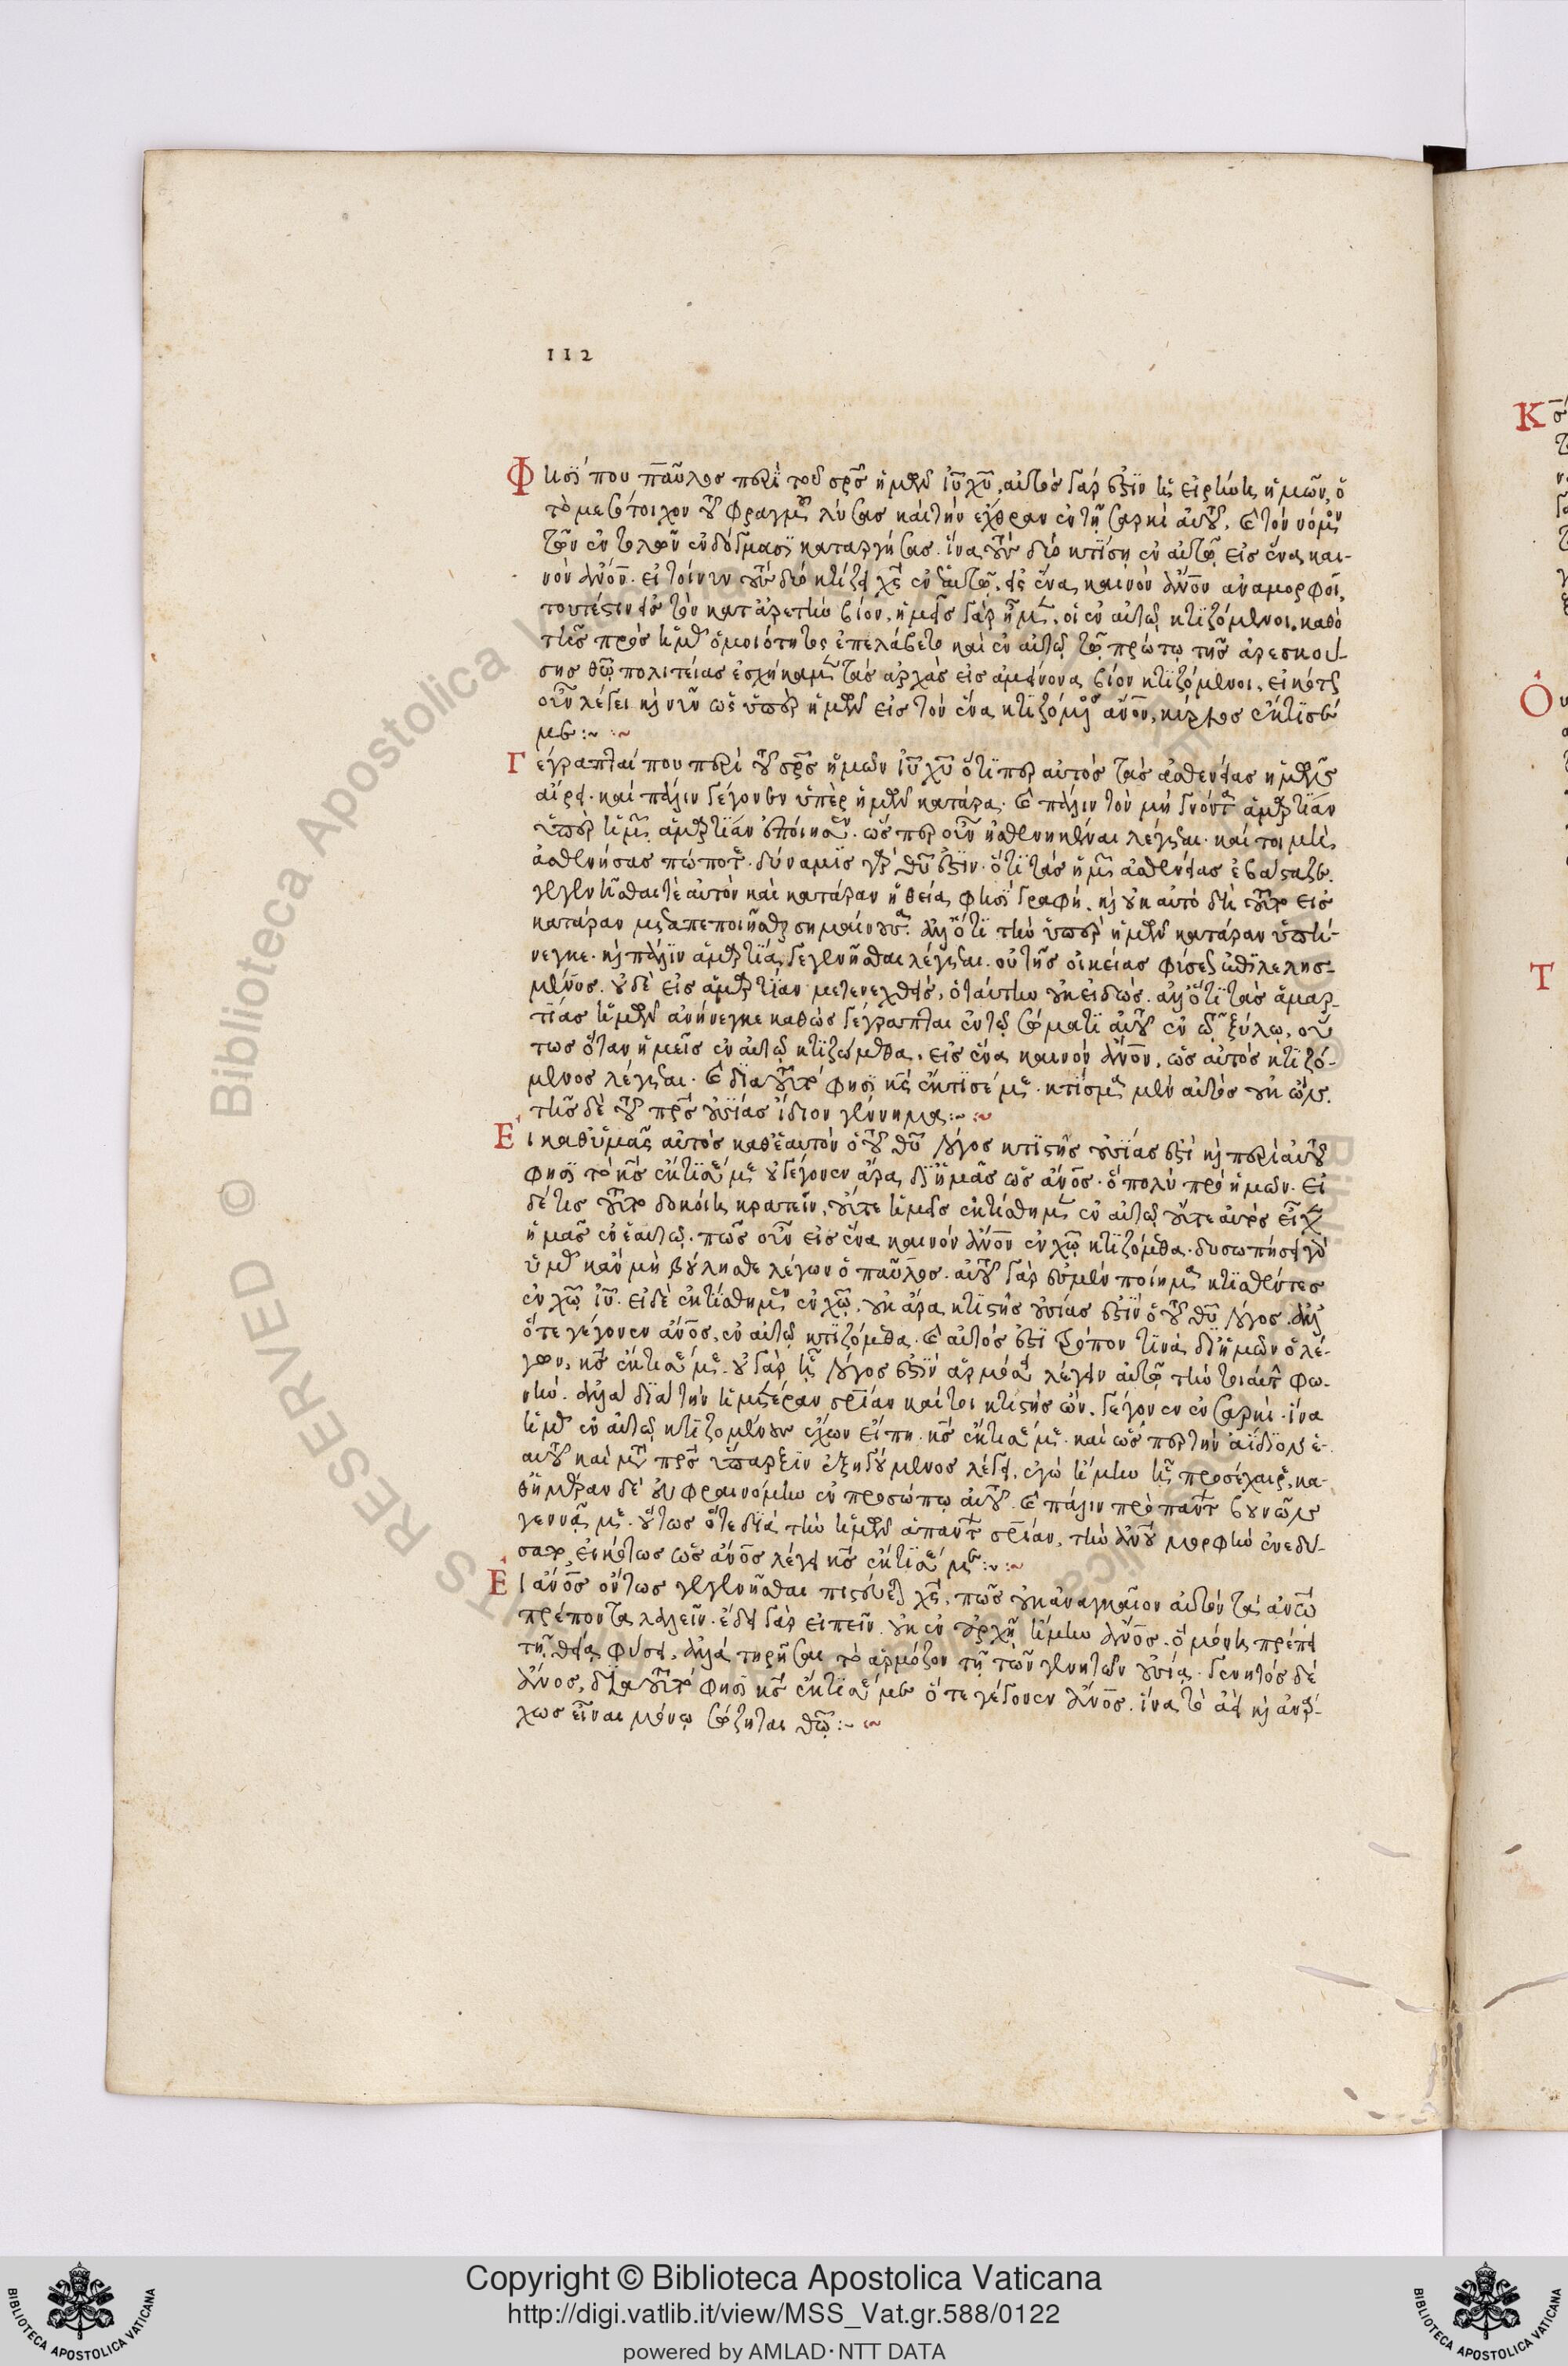 112
Φησί που παῦλος περὶ τοῦ σρ̅σ ἡμῶν ἰῦ χῦ, αὐτὸς γάρ ἐστιν ἡ εἰρήνη ἡμῶν, ὁ
τὸ μεσότοιχον τοῦ φραγμοῦ λύσας καὶ τὴν ἔχθραν ἐν τῇ σαρκὶ αὐτοῦ. καὶ τὸν νόμον
τῶν ἐντολῶν ἐν δόγμασι καταργήσας. ἵνα τοὺς δύο κτίσῃ ἐν αὐτῷ εἰς ἕνα και-
νὸν ἄνον. εἰ τοίνυν τοὺς δύο κτίζει χς ἐν ἑαυτῷ, εἰς ἕνα καινὸν ἄνον ἀναμορφοῖ,
τουτέστιν εἰς τὸν κατ ἀρετὴν βίον, ἡμεῖς γὰρ οἱ ἐν αὐτῷ κτιζόμενοι. καθὸ
τῆς πρὸς ἡμᾶς ὁμοιότητος ἐπελάβετο καὶ ἐν αὐτῷ τῷ πρώτῳ τῆς ἀρεσκού-
σης θῶ πολιτείας ἐσχήκαμεν τὰς ἀρχὰς εἰς ἀμείνονα βίον κτιζόμενοι, εἰκότως
οὖν λέγει καὶ νῦν ὡς ὑπὲρ ἡμῶν εἰς τὸν ἕνα κτιζόμενος ἄνον, κύριος ἔκτισέ
με :~ ~
Γέγραπταί που περὶ τοῦ σρ̅σ ἡμῶν ἰῦ χῦ ὅτιπερ αὐτὸς τὰς ἀσθενείας ἡμῶν
αἴρει. καὶ πάλιν γέγονεν ὑπὲρ ἡμῶν κατάρα. καὶ πάλιν τὸν μὴ γνόντα ἁμαρτίαν
ὑπὲρ ἡμῶν ἁμαρτίαν ἐποίησεν. ὥσπερ οὖν ἠσθενηκέναι λέγεται. καί τοι μὴ
ἀσθενήσας πώποτε. δύναμις γὰρ θῦ ἐστιν. ὅτι τὰς ἡμῶν ἀσθενείας ἐβάσταζε.
γεγενῆσθαί τε αὐτὸν καὶ κατάραν ἡ θεία φησὶ γραφή. καὶ οὐκ αὐτὸ δὴ τοῦτο εἰς
κατάραν μεταπεποιῆσθαι σημαίνουσα. ἀλλ ὅτι τὴν ὑπὲρ ἡμῶν κατάραν ὑπή-
νεγκε. καὶ πάλιν ἁμαρτία γεγενῆσθαι λέγεται. οὐ τῆς οἰκείας φύσεως ἐπιλελησ-
μένος. οὐδὲ εἰς ἁμαρτίαν μετενεχθεὶς, ὁ ταύτην οὐκ εἰδώς. ἀλλ ὅτι τὰς ἁμαρ-
τίας ἡμῶν ἀνήνεγκε καθὼς γέγραπται ἐν τῷ σώματι αὐτοῦ ἐν τῷ ξύλῳ. οὕ
τως ὅταν ἡμεῖς ἐν αὐτῷ κτιζώμεθα, εἰς ἕνα καινὸν ἄνον, ὡς αὐτὸς κτιζό-
μενος λέγεται. καὶ διὰ τοῦτο φησὶ κς ἔκτισέ με. κτίσμα μὲν αὐτὸς οὐκ ὤν.
τῆς δὲ τοῦ πρς οὐσίας ἴδιον γέννημα :~ ~
Εἰ καθ ὑμᾶς αὐτὸς καθ ἑαυτὸν ὁ τοῦ θῦ λόγος κτιστῆς οὐσίας ἐστὶ καὶ περὶ αὐτοῦ
φησὶ τὸ κς ἔκτισέ με οὐ γέγονεν ἄρα δι ἡμᾶς ὡς ἄνος. ὁ πολὺ πρὸ ἡμῶν. εἰ
δέ τις τοῦτο δοκοίη κρατεῖν, οὔτε ἡμεῖς ἐκτίσθημεν ἐν αὐτῷ οὔτε αὐτὸς εἶχεν
ἡμᾶς ἐν ἑαυτῷ. πῶς οὖν εἰς ἕνα καινὸν ἄνον ἐν χῶ κτιζόμεθα. δυσωπήσει γὰρ
ὑμᾶς κἂν μὴ βούλησθε λέγων ὁ παῦλος. αὐτοῦ γάρ ἐσμεν ποίημα κτισθέντες
ἐν χῶ ἰῦ. εἰ δὲ ἐκτίσθημεν ἐν χῶ, οὐκ ἄρα κτιστῆς οὐσίας ἐστὶν ὁ τοῦ θῦ λόγος. ἀλλ
ὅτε γέγονεν ἄνος, ἐν αὐτῷ κτιζόμεθα. καὶ αὐτὸς ἐστὶ τρόπον τινὰ δι ἡμῶν ὁ λέ-
γων, κς ἔκτισέ με. οὐ γὰρ ᾗ λόγος ἐστὶν ἁρμόσει λέγειν αὐτῷ τὴν τοιαύτην φω-
νήν. ἀλλὰ διὰ τὴν ἡμετέραν σρίαν καίτοι κτίστης ὤν. γέγονεν ἐν σαρκὶ. ἵνα
ἡμᾶς ἐν αὐτῷ κτιζομένους ἔχων εἴπῃ. κς ἔκτισέ με. καὶ ὥσπερ τὴν ἀΐδιον ἑ-
αυτοῦ καὶ μετὰ πρς ὕπαρξιν ἐξηγούμενος λέγει, ἐγὼ ἤμην ᾗ προσέχαιρε, κα-
θ ἡμέραν δὲ εὐφραινόμην ἐν προσώπῳ αὐτοῦ. καὶ πάλιν πρὸ πάντων βουνῶν
γεννᾷ με. οὕτως ὅτε διὰ τὴν ἡμῶν ἁπάντων σρίαν, τὴν ἀνου μορφὴν ἐνεδύ-
σατο, εἰκότως ὡς ἄνος λέγει κς ἔκτισέ με :~ ~
Εἰ ἄνος ὄντως γεγενῆσθαι πιστεύεται χς, πῶς οὐκ ἀναγκαῖον αὐτὸν τὰ ἀνῶ
πρέποντα λαλεῖν. ἔδει γὰρ εἰπεῖν. οὐκ ἐν ἀρχῇ ἤμην ἄνος. ὃ μόνῃ πρέπει
τῇ θείᾳ φύσει, ἀλλὰ τηρῆσαι τὸ ἁρμόζον τῇ τῶν γενητῶν οὐσίᾳ. γενητὸς δὲ
ἄνος, διὰ τοῦτο φησὶ κς ἔκτισέ με ὅτε γέγονεν ἄνος. ἵνα τὸ ἀεὶ καὶ ἀνάρ-
χως εἶναι μόνῳ σώζηται θῶ :~ ~
Copyright © Biblioteca Apostolica Vaticana
http://digi.vatlib.it/view/MSS_Vat.gr.588/0122
powered by AMLAD·NTT DATA